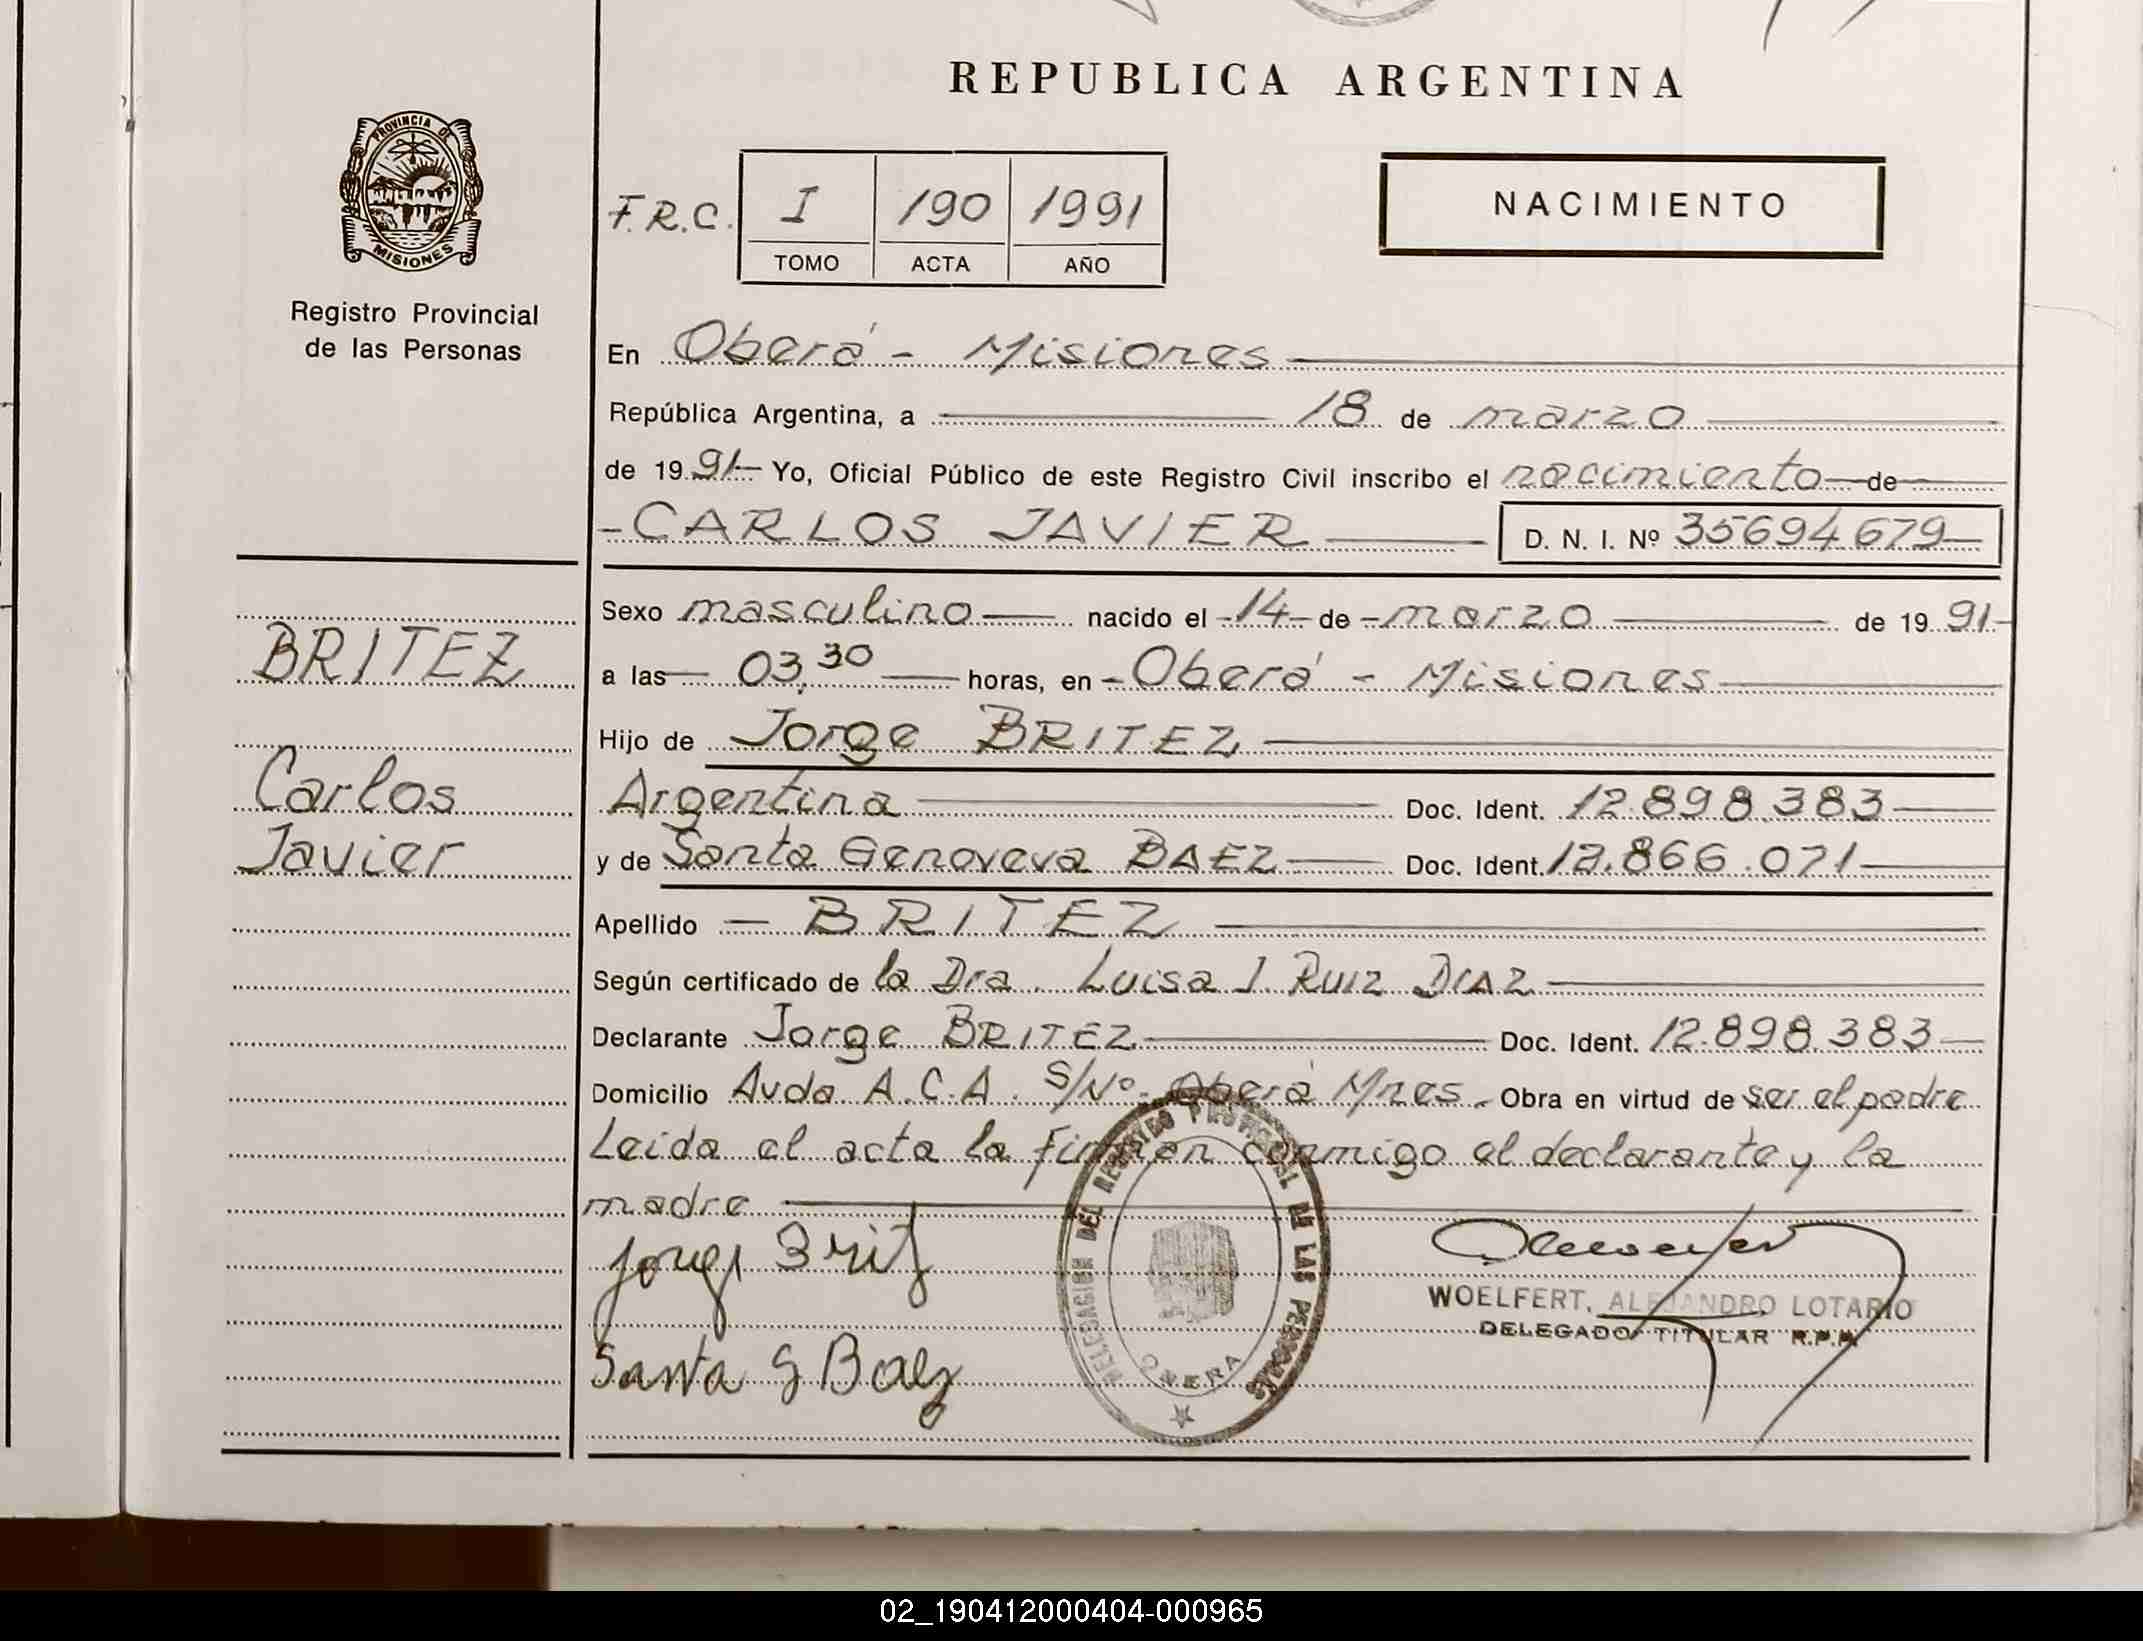 REPUBLICA ARGENTINA
PROVINCIA DE
MISIONES
Registro Provincial
de las Personas
F.R.C. I 190 1991
TOMO ACTA AÑO
NACIMIENTO
En Oberá - Misiones
República Argentina, a 18 de marzo
de 1991 Yo, Oficial Público de este Registro Civil inscribo el nacimiento de
CARLOS JAVIER D. N. I. Nº 35694679
Sexo masculino nacido el 14 de marzo de 1991
a las 03,30 horas, en Oberá - Misiones
Hijo de Jorge BRITEZ
Argentina Doc. Ident. 12.898.383
y de Santa Genoveva BAEZ Doc. Ident. .866.071
Apellido BRITEZ
Según certificado de la Dra. Luisa J. RUIZ DIAZ
Declarante Jorge BRITEZ Doc. Ident. 12.898.383
Domicilio Avda A.C.A. S/Nº Oberá Mnes. Obra en virtud de ser el padre
Leida el acta la firman conmigo el declarante y la
madre
BRITEZ
Carlos
Javier
Jorge Brit
Santa G Baez
DELEGACION DEL REGISTRO PROVINCIAL DE LAS PERSONAS
OBERA
WOELFERT, ALEJANDRO LOTARIO
DELEGADO TITULAR R.P.P.
02_190412000404-000965